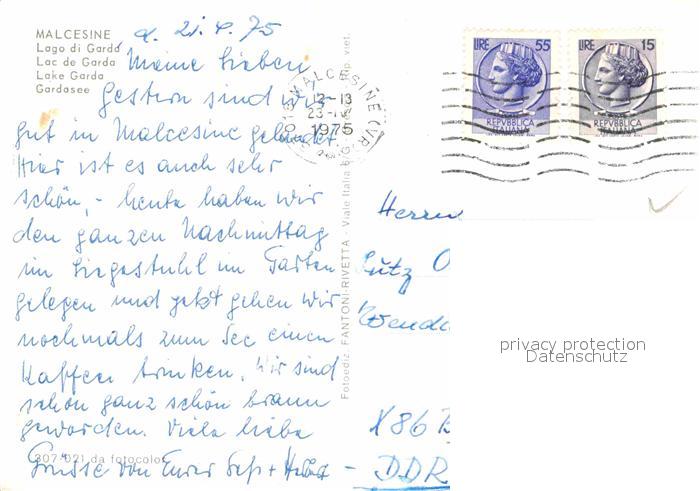 MALCESINE
Lago di Garda
Lac de Garda
Lake Garda
Gardasee
d. 21.4.75
Meine Lieben
Gestern sind wir
gut in Malcesine gelandet
Hier ist es auch sehr
schön, - heute haben wir
den ganzen Nachmittag
im Liegestuhl im Garten
gelegen und jetzt gehen wir
nochmals zum See einen
Kaffee trinken. Wir sind
schon ganz schön braun
geworden. Viele liebe
Grüsse von Eurer
307/021 da fotocolor
Fotoediz. FANTONI-RIVETTA - Viale Italia
Rip. viet.
MALCESINE (VR)
12-13
23-
1975
LIRE 55
REPVBBLICA
ITALIANA
LIRE 15
REPVBBLICA
ITALIANA
Herrn
Lutz
X86
DDR
privacy protection
Datenschutz